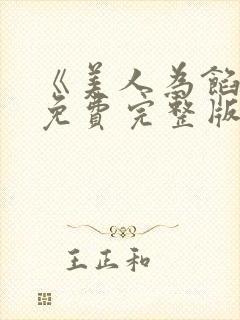 《美人为馅
免费完整版
王正和